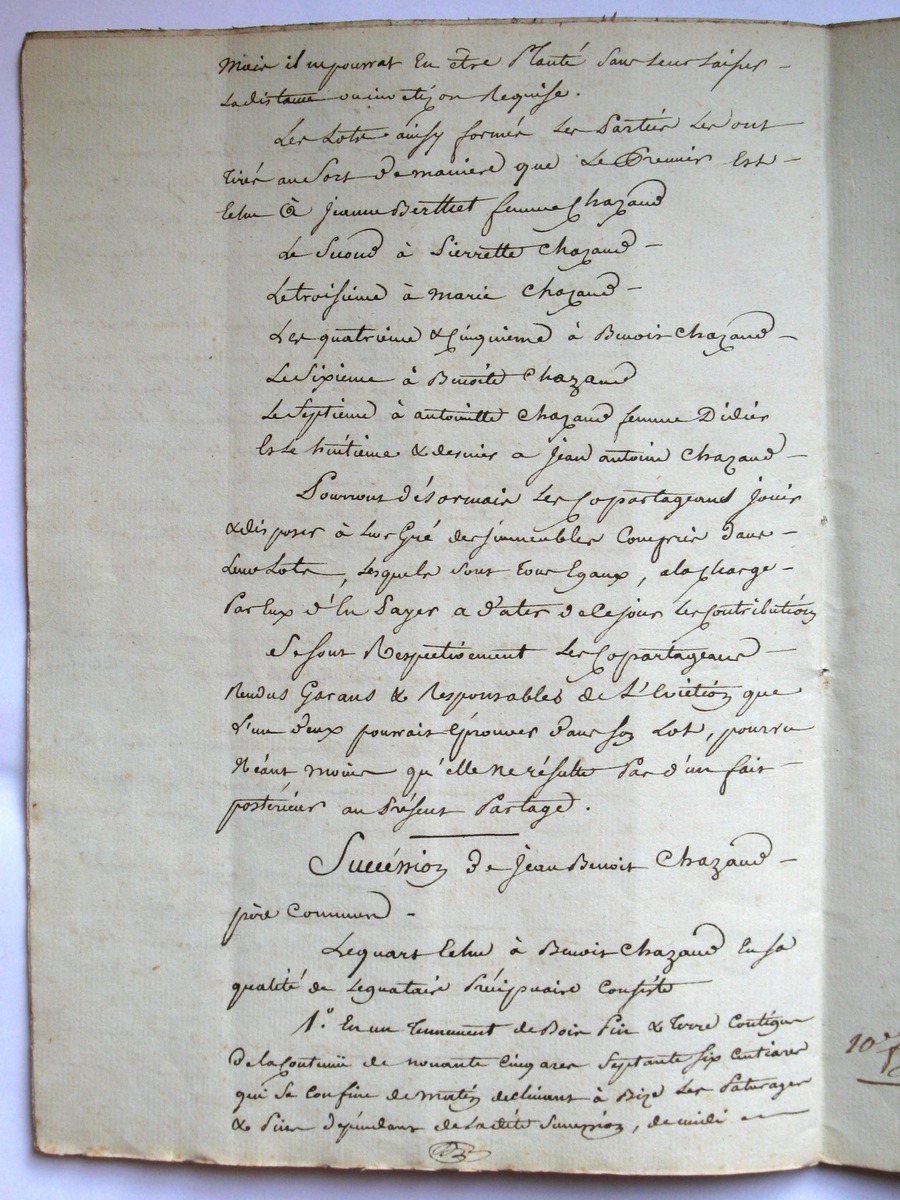 Mais il ne pourrat En être Planté Sans leur Laisser -
La distance ou inve Requise.
Les Lots ainsy formés Les Parties Les ont
Tirés au Sort De maniere que Le Premier Est -
Echu à Jeanne Berthet femme Chazaud
Le Second à Pierrette Chazaud -
Le troisième à marie Chazaud -
Les quatrieme & Cinquieme à Benoit Chazaud -
Le Sixieme à Benoite Chazaud
Le Septieme à antoinette Chazaud femme Didier
Et Le huitieme & dernier a Jean antoine Chazaud -
Pourront désormais Les Copartageans jouir
& disposer à Leur Gré des immeubles Compris dans -
Leurs Lots, Lesquels sont Tous Egaux, a la Charge -
Par Eux d'En Payer a Dater de ce jour Les Contributions
Se sont Respectivement Les Copartageans -
Rendus Garans & Responsables de L'Eviction que
L'un d'eux pourrait Eprouver Dans son Lot, pourvu
Néant moins qu'elle ne résulte Pas d'un fait -
postérieur au Présent Partage.
Succéssion De Jean Benoit Chazaud -
père Commun -
Le quart Echu à Benoit Chazaud En sa
qualité de Leguataire Précipuaire Consiste
1.° En un Tennement de Bois Pin & Terre Contigus
De la Contenue de nonante Cinq ares Septante six Centiares
qui Se Confine de matin declinant à Bize Les Paturages
& Pins dépendant de La dite Succession, de midi -
10e